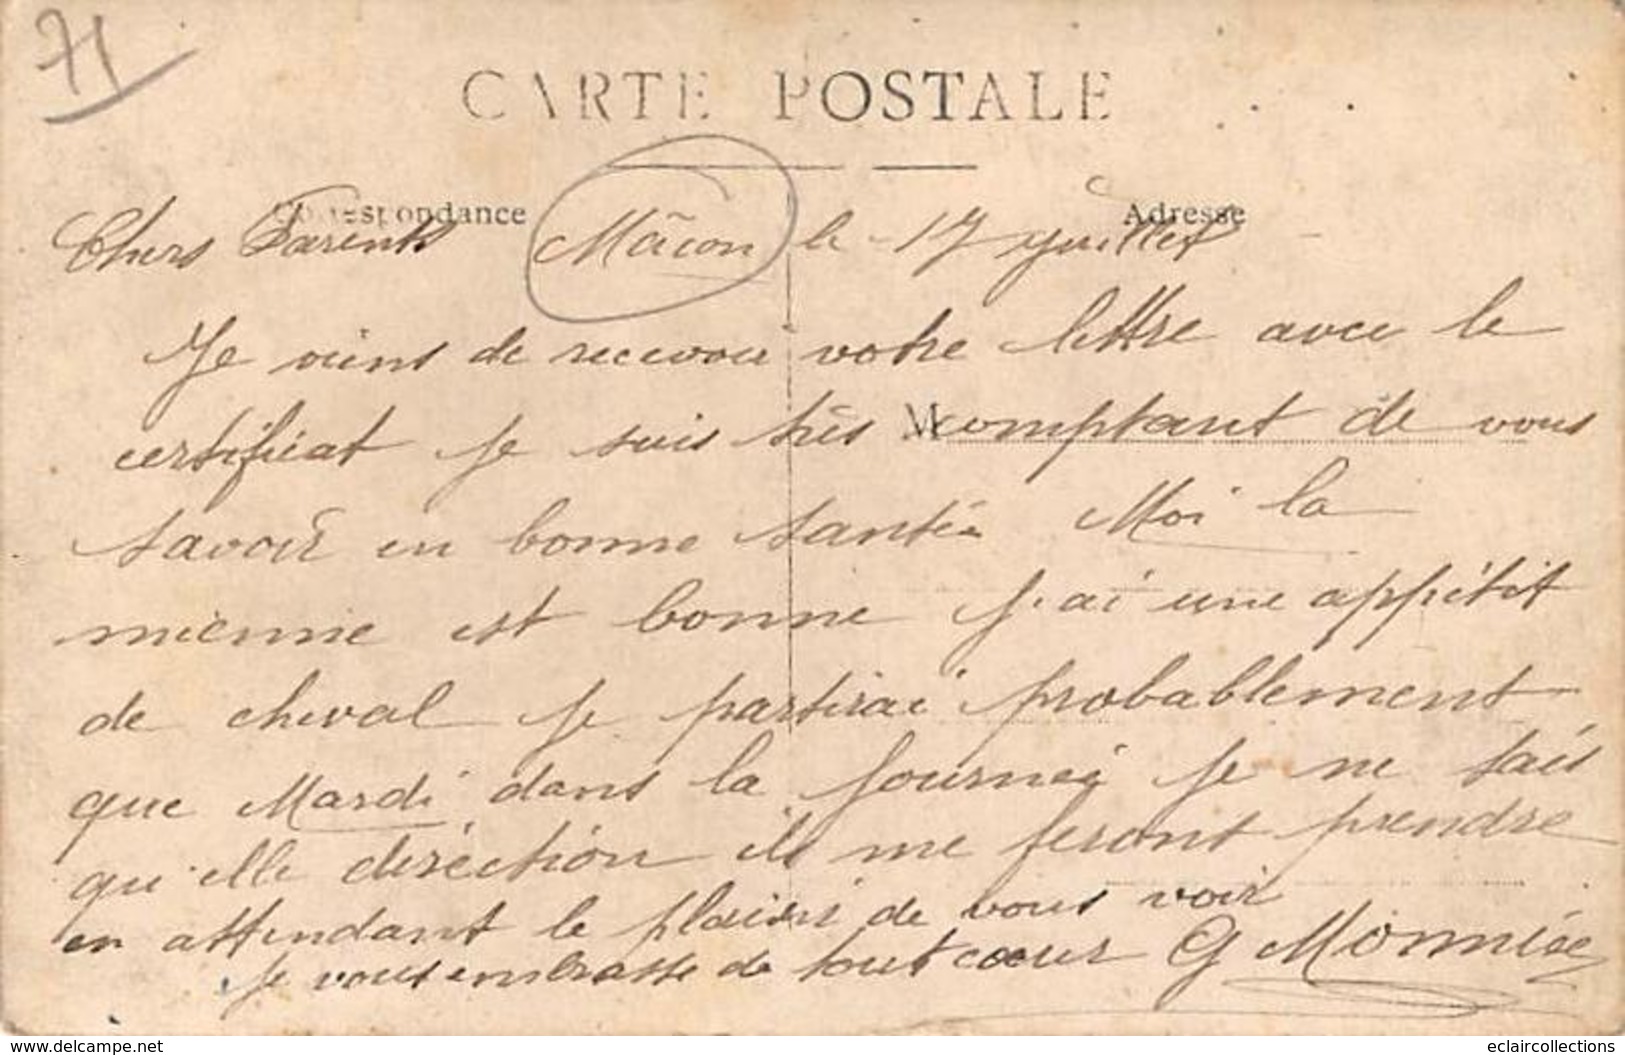 71
CARTE POSTALE
Correspondance
Adresse
Chers Parents Mâcon le 17 Juillet
Je viens de recevoir votre lettre avec le
certifiéat je suis très M comptant de vous
savoir en bonne santée Moi la
mienne est bonne j'ai une appétit
de cheval je partirai probablement
que Mardi dans la journeé je ne sais
qu'elle diréction ils me feront prendre
en attendant le plaisir de vous voir
je vous embrasse de tout cœur G Monnier
www.delcampe.net
eclaircollections